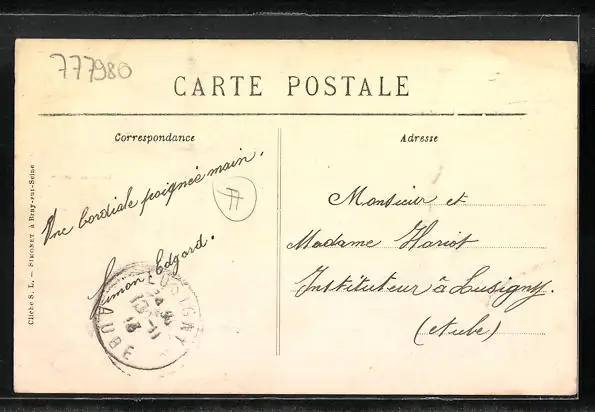 777980
CARTE POSTALE
Correspondance
Adresse
Une Cordiale poignée main.
Simon Edgard.
77
LUSIGNY
AUBE
Monsieur et
Madame Hariot
Instituteur à Lusigny.
(Aube)
Cliché S. L. — SIMONET à Bray-sur-Seine